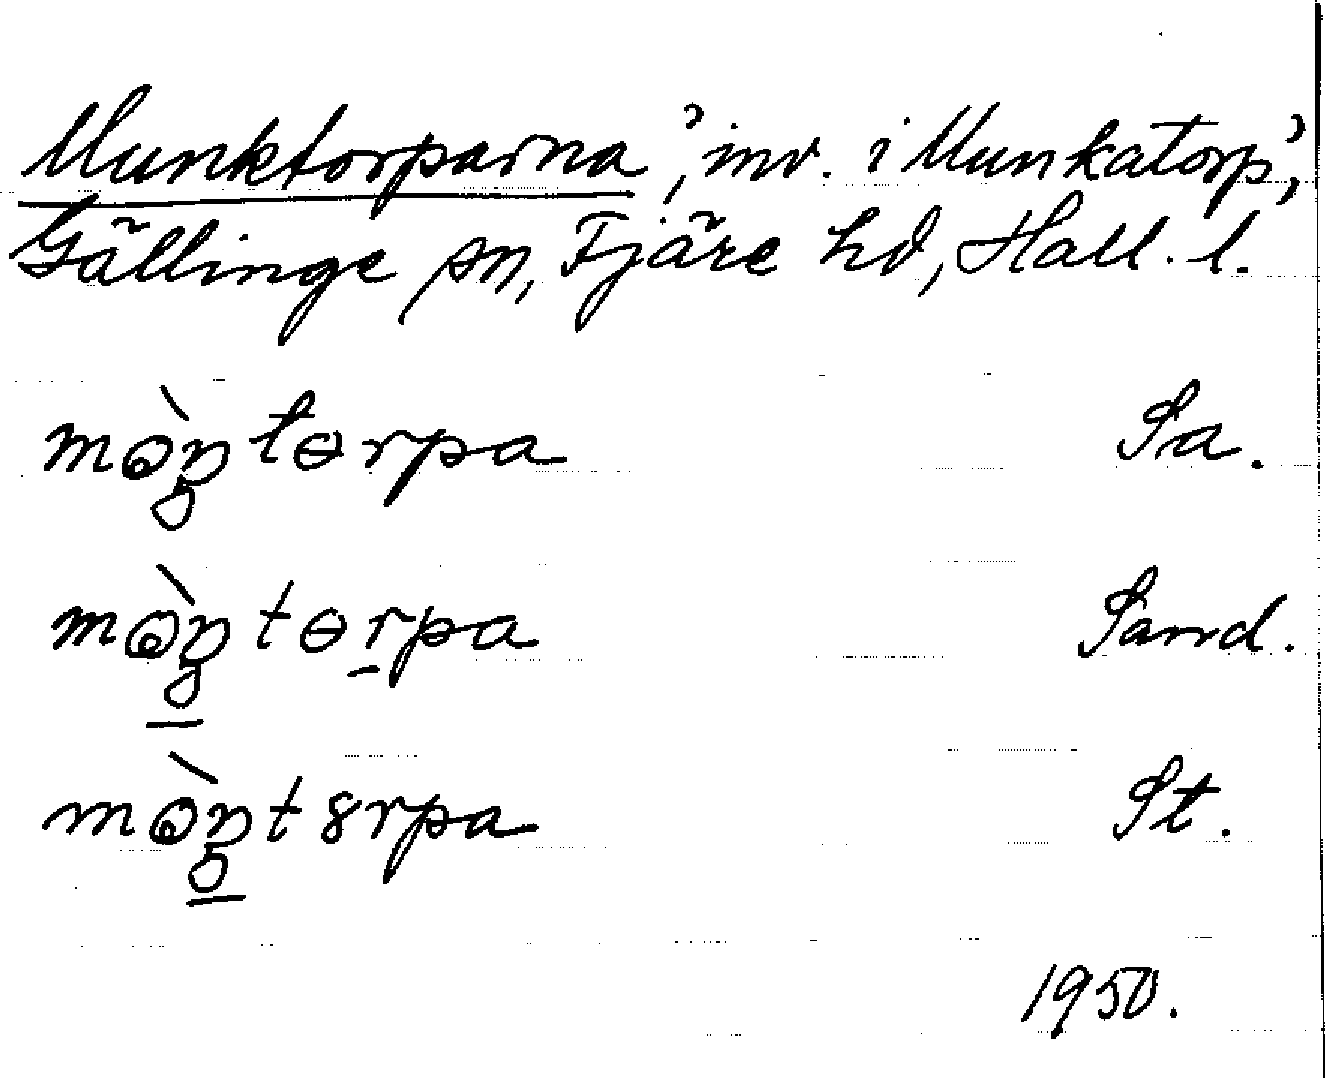 Munktorparna, ’inv. i Munkatorp’,
Gällinge sn, Fjäre hd, Hall. l.
Sa.
Sand.
St.
1950.